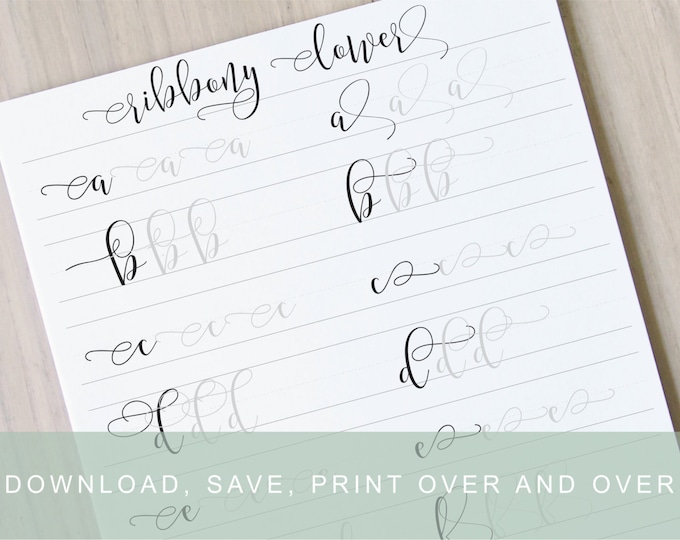 ribbony lower
a a a a a a
b b b b b b
c c c c c c
d d d d d d
e e e e e
DOWNLOAD, SAVE, PRINT OVER AND OVER